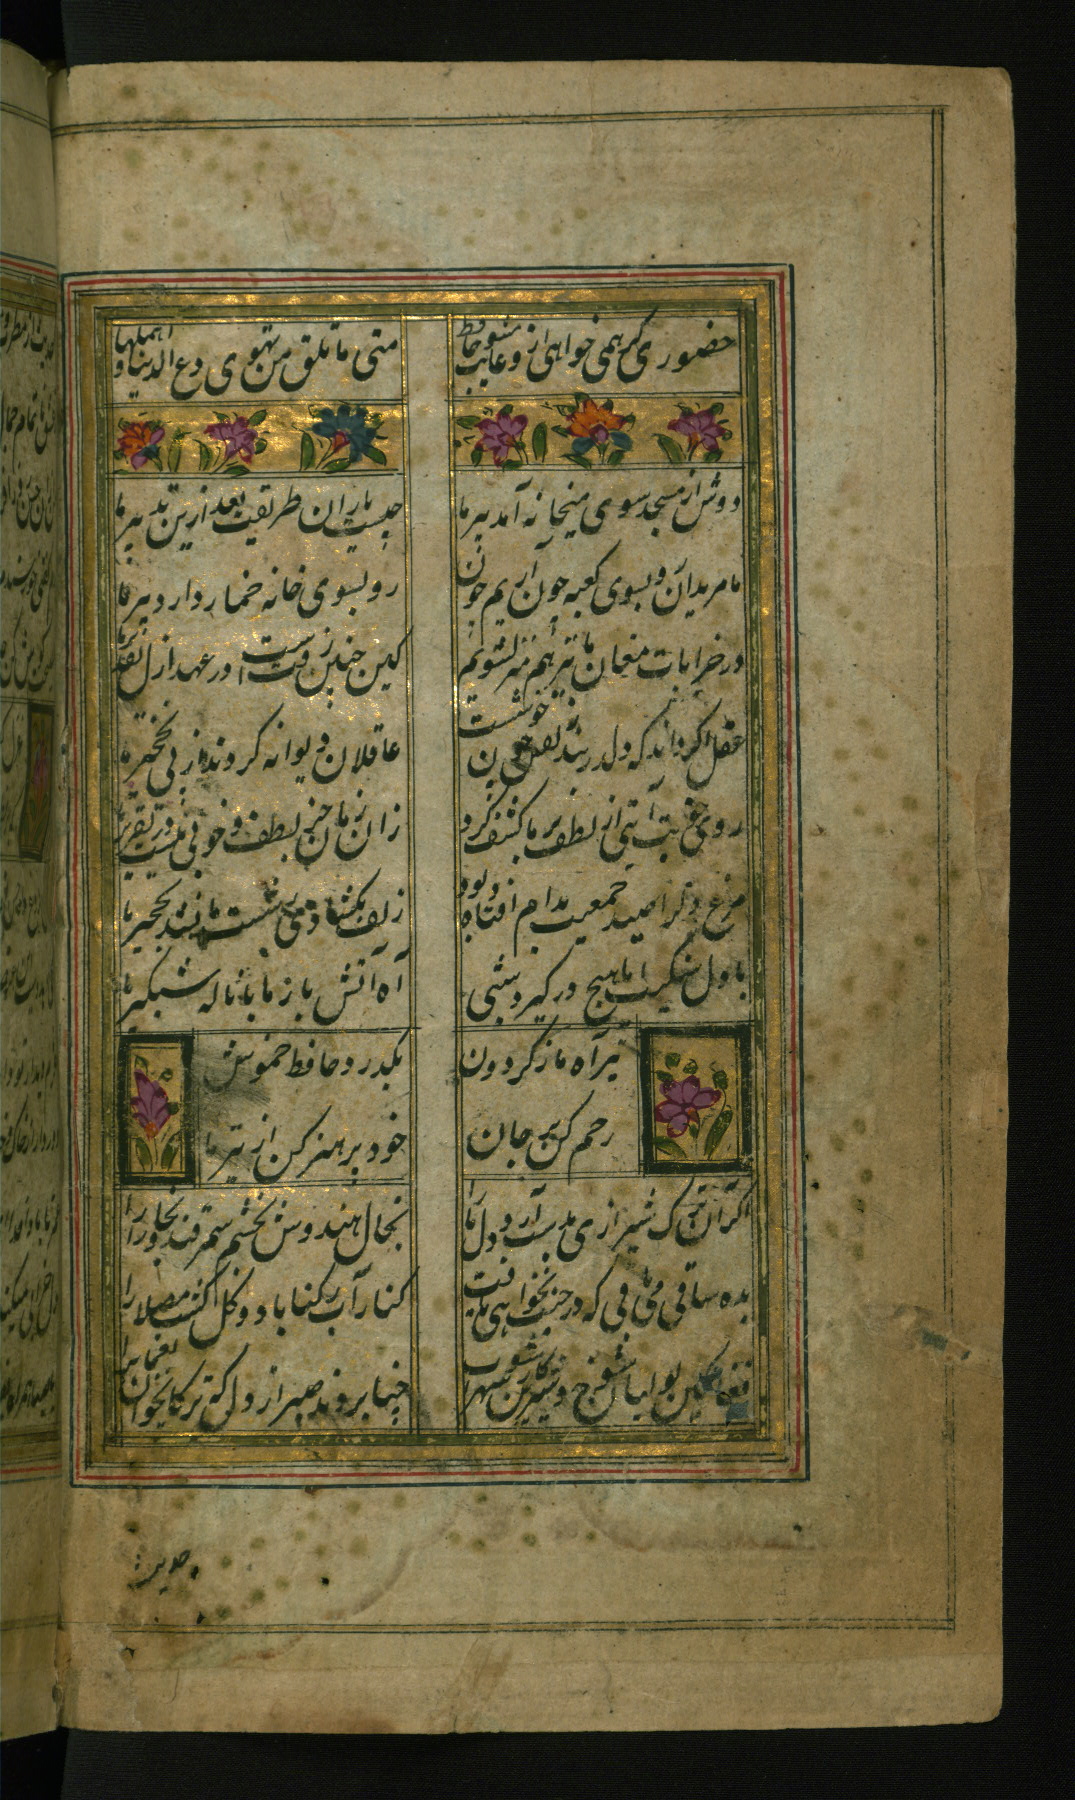 حضوری گر همی خواهی ازو غایب مشو حافظ
متی ما تلق من تهوی دع الدنیا و اهملها
دوش از مسجد سوی میخانه آمد پیر ما
چیست یاران طریقت بعد ازین تدبیر ما
ما مریدان رو بسوی کعبه چون آریم چون
رو بسوی خانه خمار دارد پیر ما
در خرابات مغان ما نیز هم منزل شویم
کین چنین رفتست در عهد ازل تقدیر ما
عقل اگر داند که دل در بند زلفش چون خوشست
عاقلان دیوانه گردند از پی زنجیر ما
روی خوبت آیتی از لطف بر ما کشف کرد
زان زمان جز لطف و خوبی نیست در تفسیر ما
مرغ دل را صید جمعیت بدام افتاده بود
زلف بکشادی ز دست ما بشد نخجیر ما
با دل سنگینت ایا هیچ در گیرد شبی
آه آتش بار ما با ناله شبگیر ما
تیر آه ما ز گردون
بگذرد حافظ خموش
رحم کن بر جان
خود پرهیز کن از تیر ما
اگر آن ترک شیرازی بدست آرد دل ما را
بخال هندوش بخشم سمرقند و بخارا را
بده ساقی می باقی که در جنت نخواهی یافت
کنار آب رکناباد و گلگشت مصلا را
فغان کین لولیان شوخ و شیرین کار شهر آشوب
چنان بردند صبر از دل که ترکان خوان یغما را
حدیث